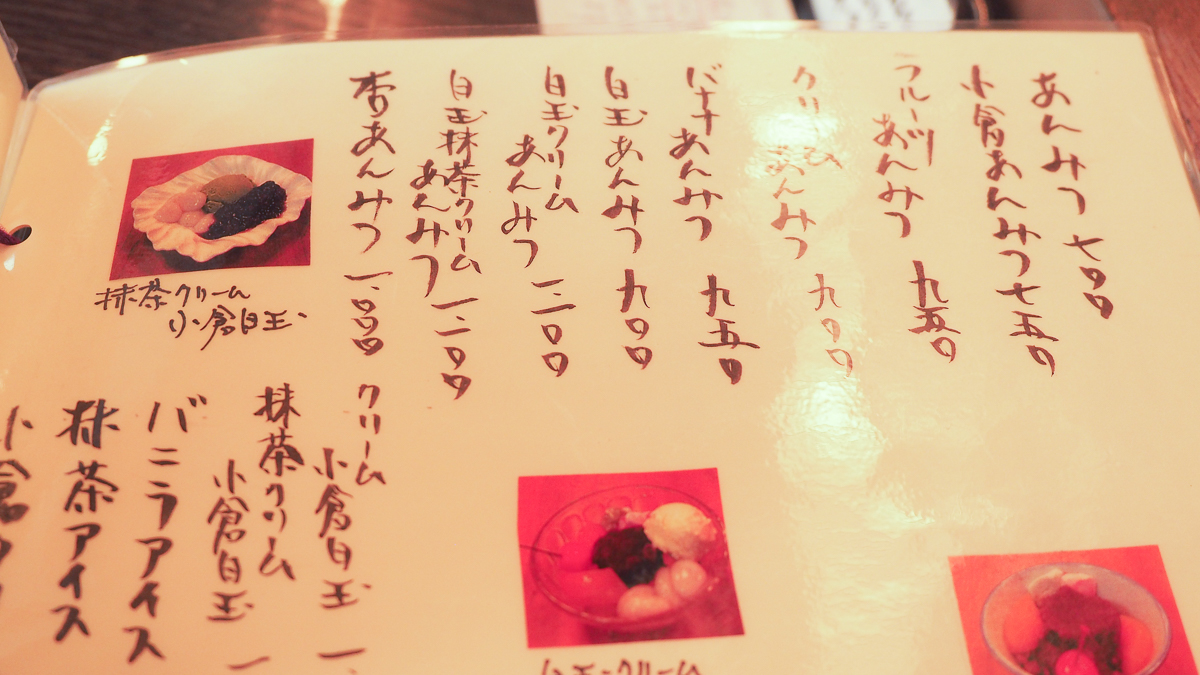 あんみつ 七〇〇
小倉あんみつ 七五〇
フルーツ
あんみつ 九五〇
クリーム
あんみつ 九〇〇
バナナ
あんみつ 九五〇
白玉あんみつ 九〇〇
白玉クリーム
あんみつ 一、一〇〇
白玉抹茶クリーム
あんみつ 一、二〇〇
杏あんみつ 一、〇〇〇
抹茶クリーム
小倉白玉
クリーム
小倉白玉 一
抹茶クリーム
小倉白玉 一
バニラアイス
抹茶アイス
小倉ア